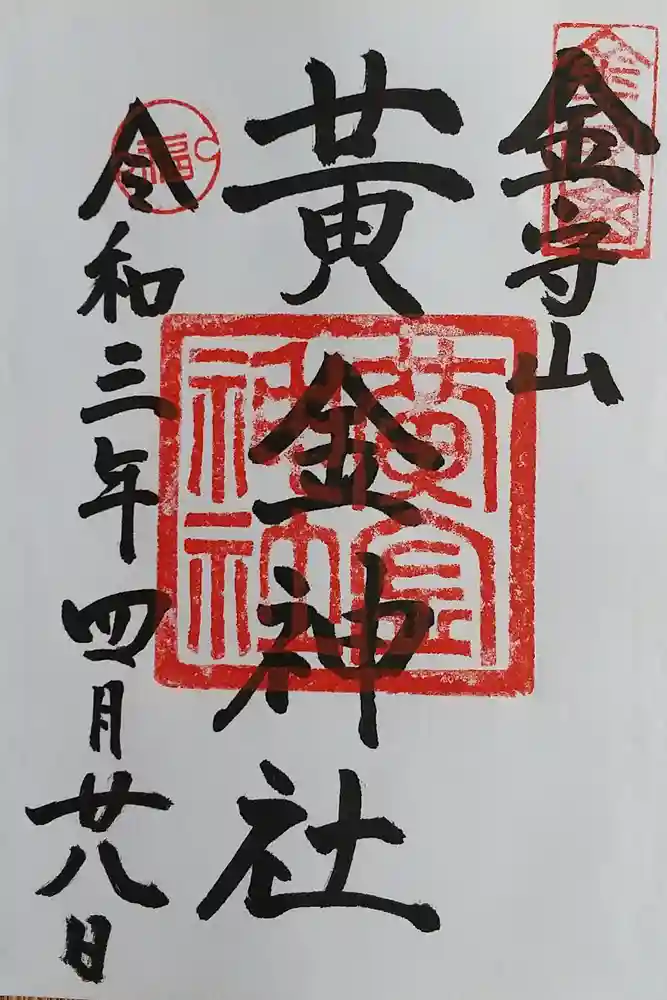 金守山
黄金神社
令和三年四月廿八日
福